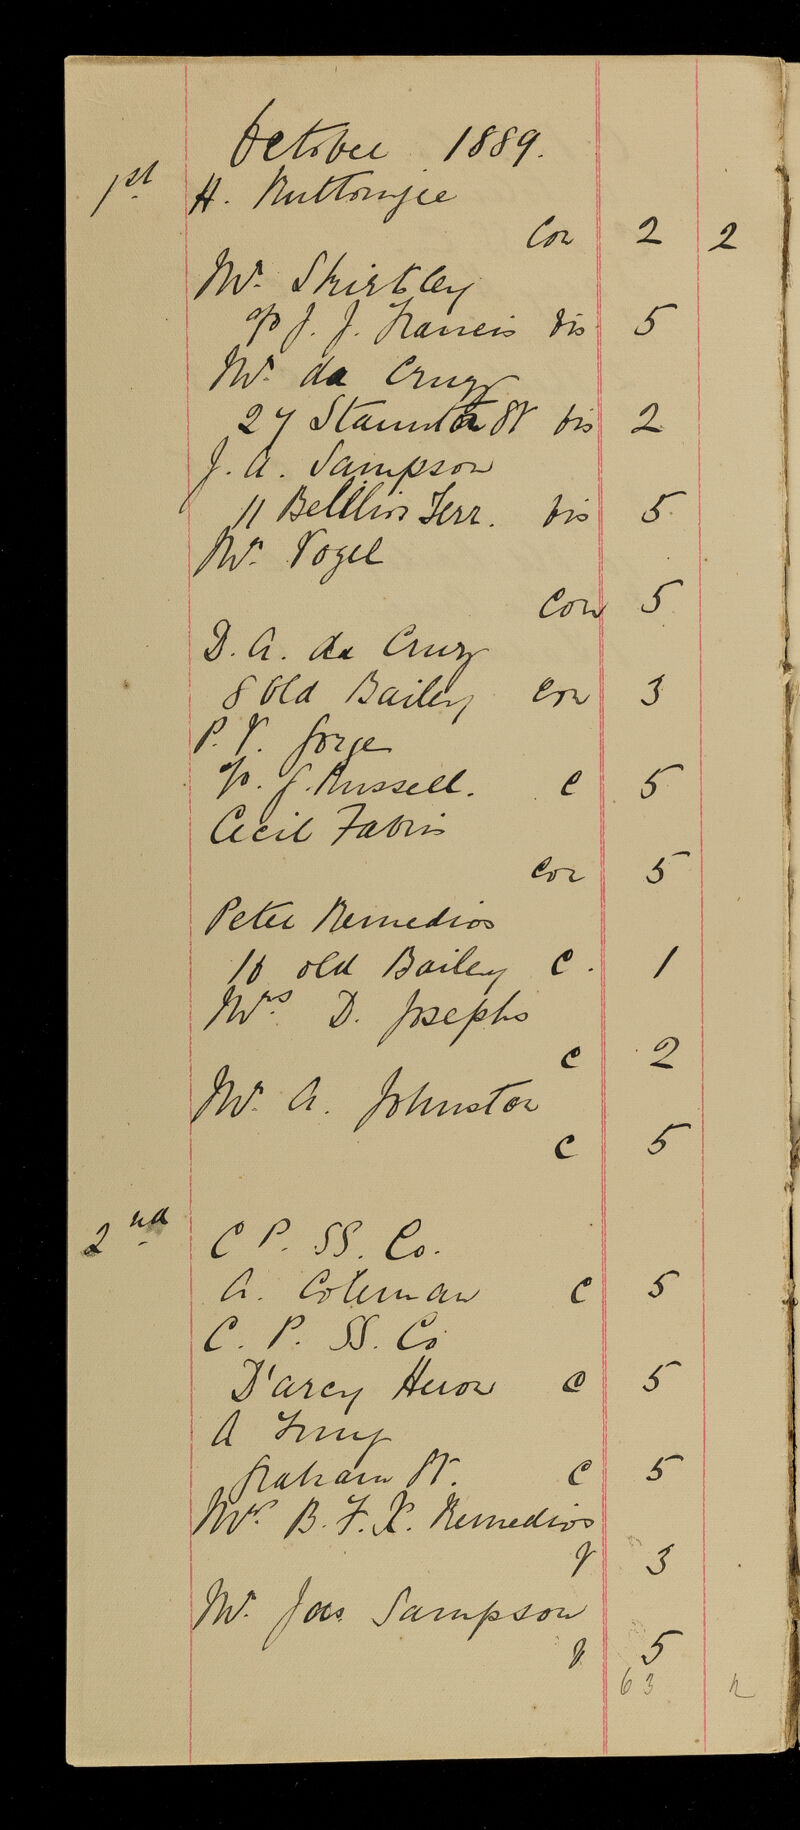 October 1889.
1st H. Ruttonjee
Con 2 2
Mr. Skirtley
c/o J. J. Francis vis 5
Mr. da Cruz
27 Staunton St vis 2
J. A. Sampson
11 Bellios Terr. vis 5
Mr. Vogel
Con 5
D. A. da Cruz
8 Old Bailey Con 3
P. V. Jorge
c/o. J. Russell. C 5
Cecil Fabris
Con 5
Peter Remedios
10 old Bailey C. 1
Mrs D. Josephs
C 2
Mr. A. Johnston
C 5
2nd C P. SS. Co.
A. Coleman C 5
C. P. SS. Co
D'arcy Heron C 5
A
Graham St. C 5
Mr. B. F. X. Remedios
V 3
Mr. Jas. Sampson
V. 5
63 2